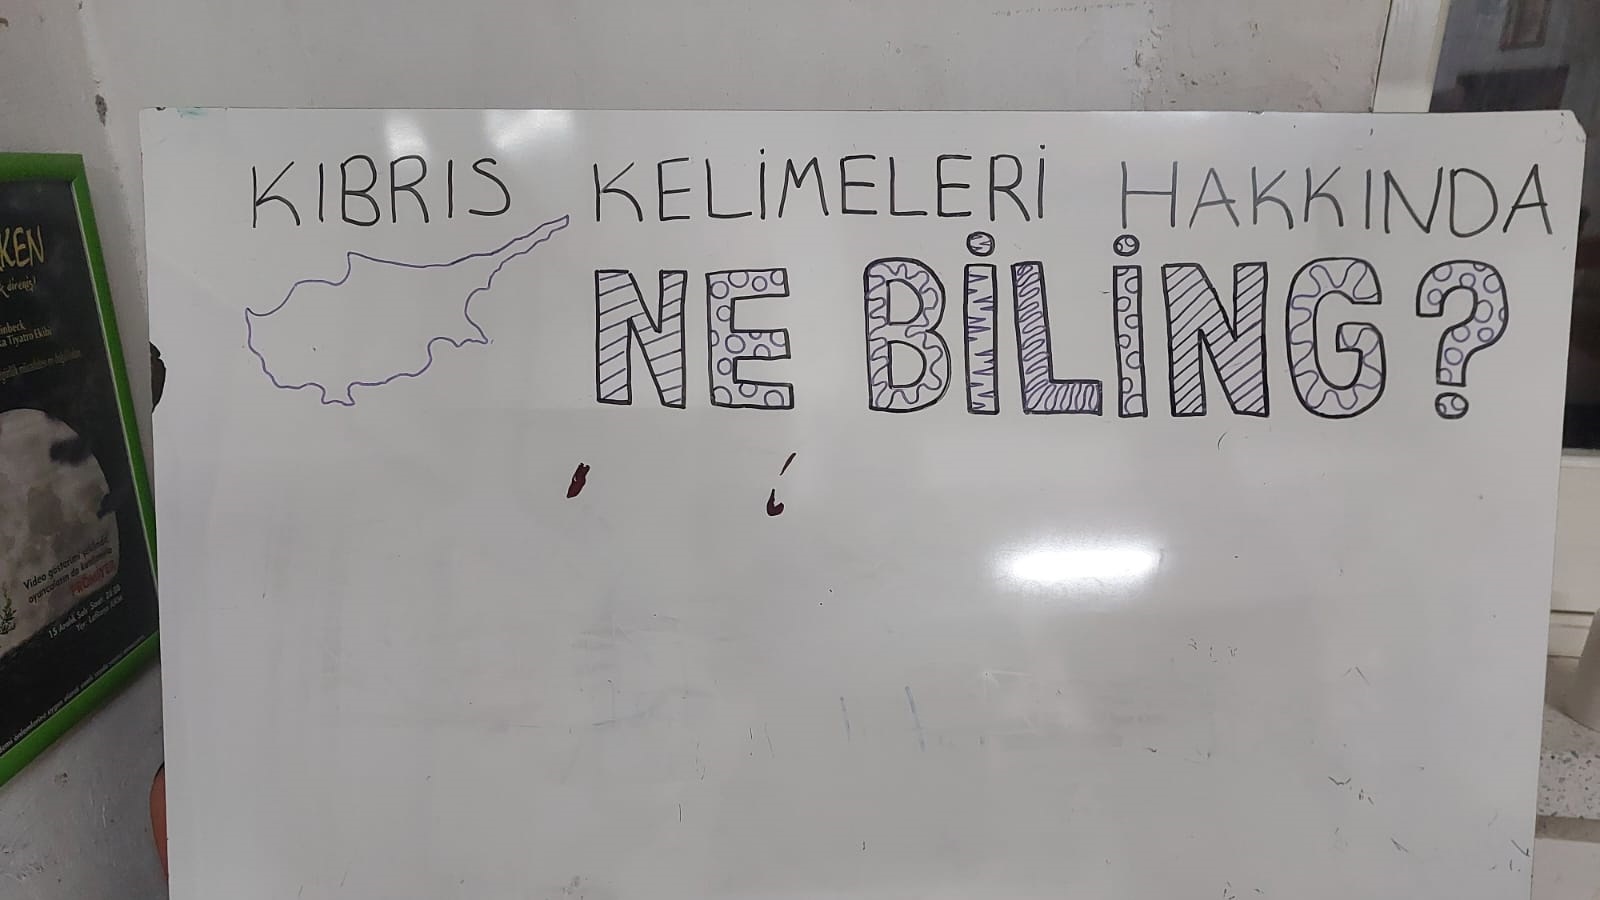 KIBRIS KELİMELERİ HAKKINDA
NE BİLİNG?
KEN
direniş!
Video gösterimi şeklindedir,
PRÖMİYER
15 Aralık Salı Saat 20.00